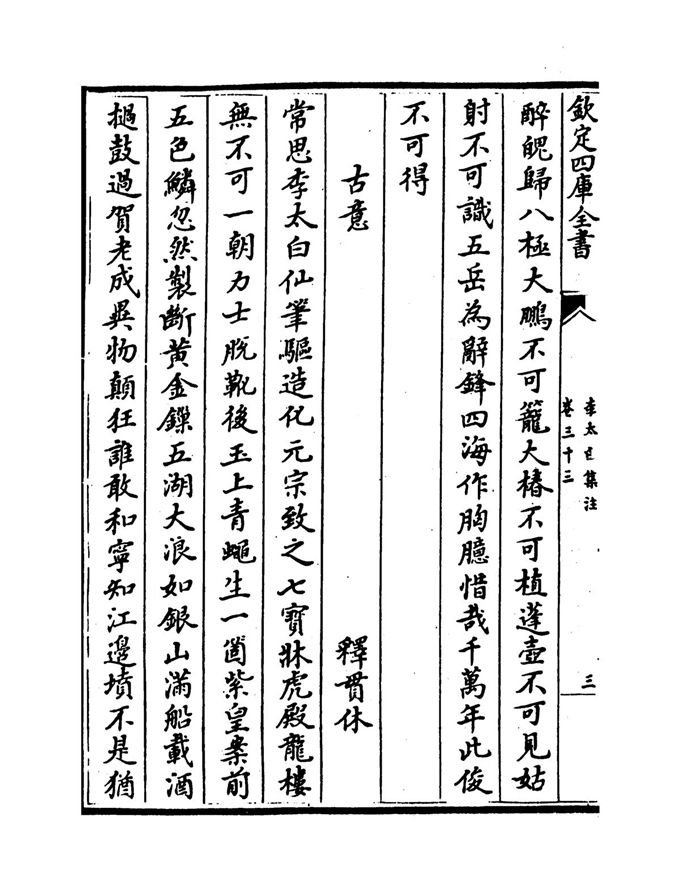 欽定四庫全書
李太白集注
卷三十三
三
醉魄歸八極大鵬不可籠大椿不可植蓬壺不可見姑
射不可識五岳為辭鋒四海作胸臆惜哉千萬年此俊
不可得
古意 釋貫休
常思李太白仙筆驅造化元宗致之七寳牀虎殿龍樓
無不可一朝力士脫靴後玉上青蠅生一箇紫皇案前
五色鱗忽然掣斷黄金鏁五湖大浪如銀山滿船載酒
撾鼓過賀老成異物顛狂誰敢和寧知江邊墳不是猶